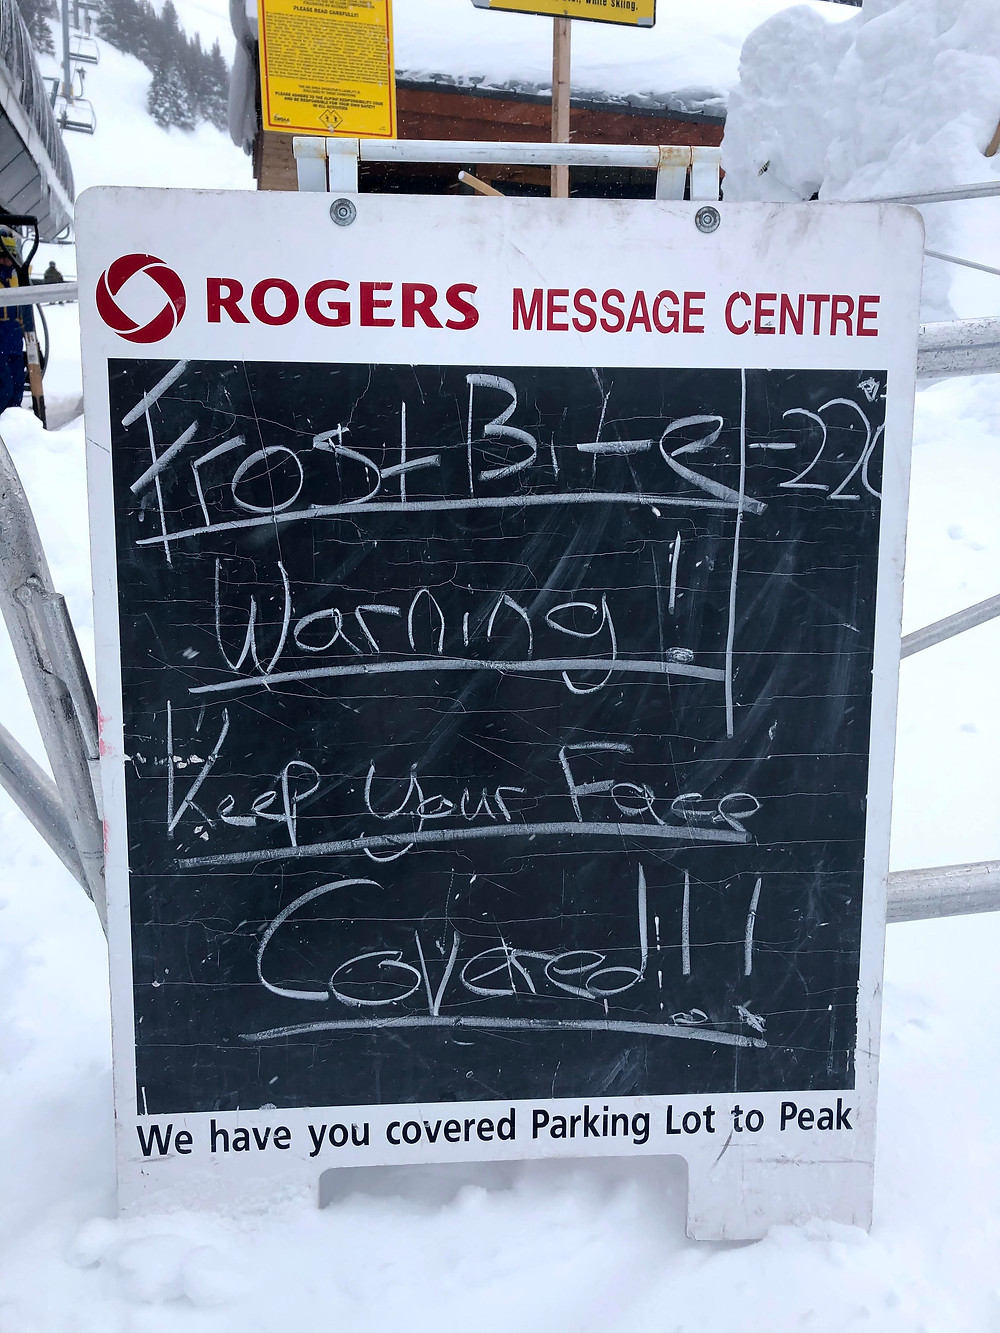 PLEASE READ CAREFULLY!
PLEASE ADHERE TO THE ALPINE RESPONSIBILITY CODE
AND BE RESPONSIBLE FOR YOUR OWN SAFETY
IN ALL ACTIVITIES
while skiing.
ROGERS MESSAGE CENTRE
Frost Bite -22C
Warning!
Keep your Face
Covered!!!
We have you covered Parking Lot to Peak